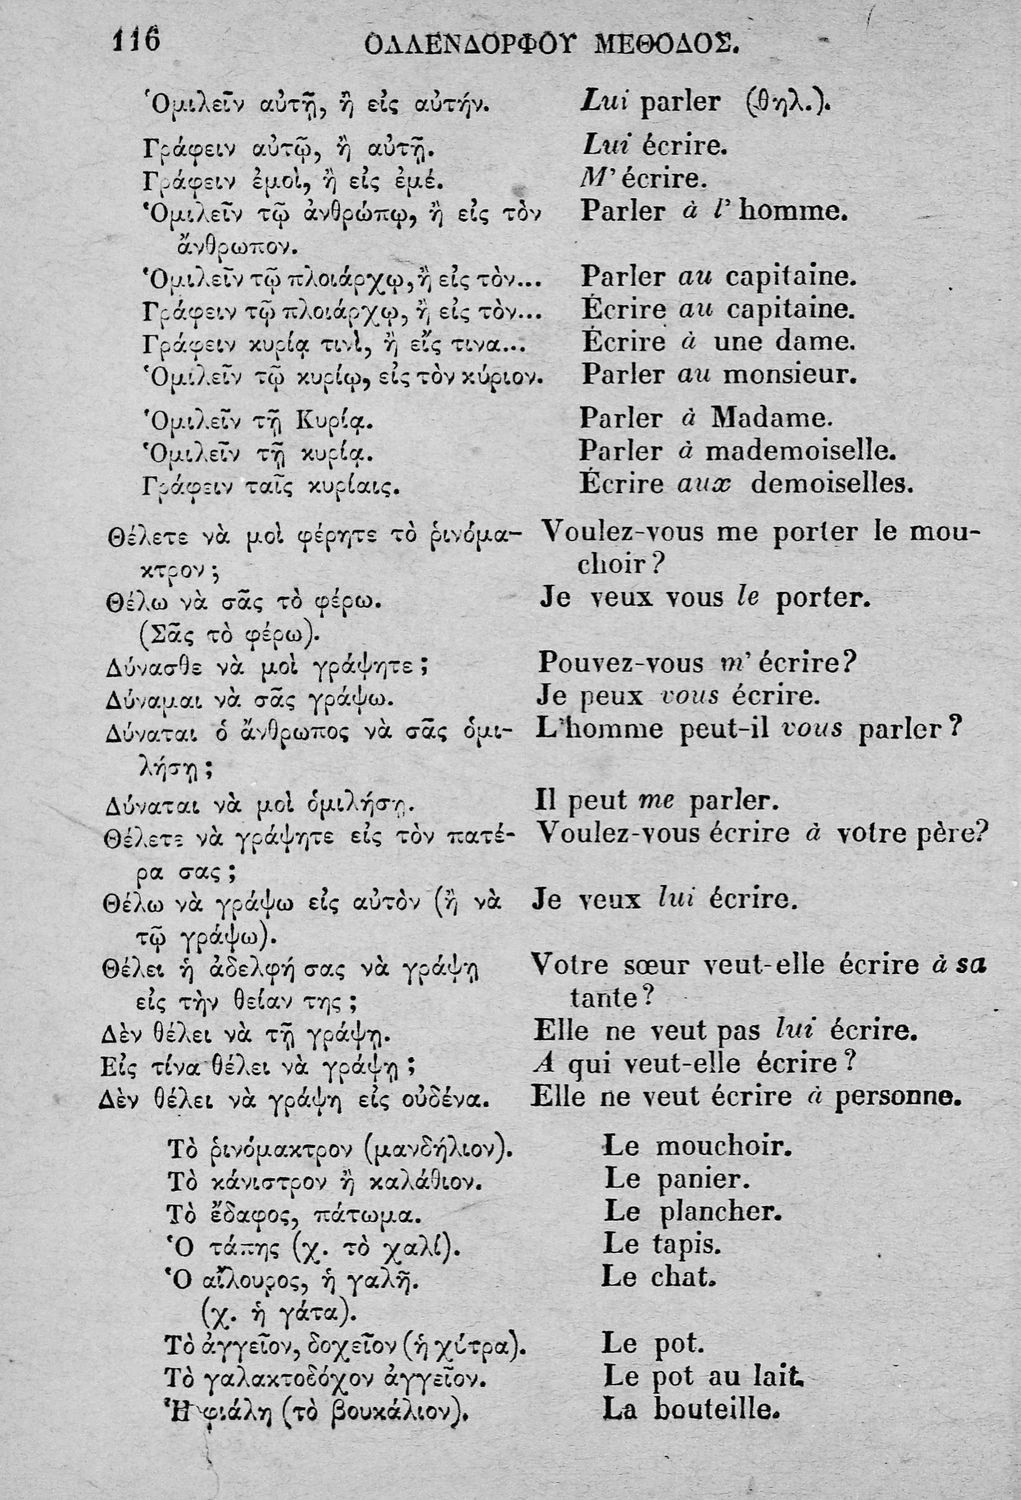 116 ΟΛΛΕΝΔΟΡΦΟΥ ΜΕΘΟΔΟΣ.
Ὁμιλεῖν αὐτῇ, ἢ εἰς αὐτήν. Lui parler (θηλ.).
Γράφειν αὐτῷ, ἢ αὐτῇ. Lui écrire.
Γράφειν ἐμοὶ, ἢ εἰς ἐμέ. M' écrire.
Ὁμιλεῖν τῷ ἀνθρώπῳ, ἢ εἰς τὸν Parler à l' homme.
ἄνθρωπον.
Ὁμιλεῖν τῷ πλοιάρχῳ, ἢ εἰς τὸν... Parler au capitaine.
Γράφειν τῷ πλοιάρχῳ, ἢ εἰς τὸν... Écrire au capitaine.
Γράφειν κυρίᾳ τινὶ, ἢ εἴς τινα... Écrire à une dame.
Ὁμιλεῖν τῷ κυρίῳ, εἰς τὸν κύριον. Parler au monsieur.
Ὁμιλεῖν τῇ Κυρίᾳ. Parler à Madame.
Ὁμιλεῖν τῇ κυρίᾳ. Parler à mademoiselle.
Γράφειν ταῖς κυρίαις. Écrire aux demoiselles.
Θέλετε νὰ μοὶ φέρητε τὸ ῥινόμα- Voulez-vous me porter le mou-
κτρον; choir?
Θέλω νὰ σᾶς τὸ φέρω. Je veux vous le porter.
(Σᾶς τὸ φέρω).
Δύνασθε νὰ μοὶ γράψητε; Pouvez-vous m' écrire?
Δύναμαι νὰ σᾶς γράψω. Je peux vous écrire.
Δύναται ὁ ἄνθρωπος νὰ σᾶς ὁμι- L'homme peut-il vous parler?
λήσῃ;
Δύναται νὰ μοὶ ὁμιλήσῃ. Il peut me parler.
Θέλετε νὰ γράψητε εἰς τὸν πατέ- Voulez-vous écrire à votre père?
ρα σας;
Θέλω νὰ γράψω εἰς αὐτὸν (ἢ νὰ Je veux lui écrire.
τῷ γράψω).
Θέλει ἡ ἀδελφή σας νὰ γράψῃ Votre sœur veut-elle écrire à sa
εἰς τὴν θείαν της; tante?
Δὲν θέλει νὰ τῇ γράψῃ. Elle ne veut pas lui écrire.
Εἰς τίνα θέλει νὰ γράψῃ; A qui veut-elle écrire?
Δὲν θέλει νὰ γράψῃ εἰς οὐδένα. Elle ne veut écrire à personne.
Τὸ ῥινόμακτρον (μανδήλιον). Le mouchoir.
Τὸ κάνιστρον ἢ καλάθιον. Le panier.
Τὸ ἔδαφος, πάτωμα. Le plancher.
Ὁ τάπης (χ. τὸ χαλί). Le tapis.
Ὁ αἴλουρος, ἡ γαλῆ. Le chat.
(χ. ἡ γάτα).
Τὸ ἀγγεῖον, δοχεῖον (ἡ χύτρα). Le pot.
Τὸ γαλακτοδόχον ἀγγεῖον. Le pot au lait.
Ἡ φιάλη (τὸ βουκάλιον). La bouteille.